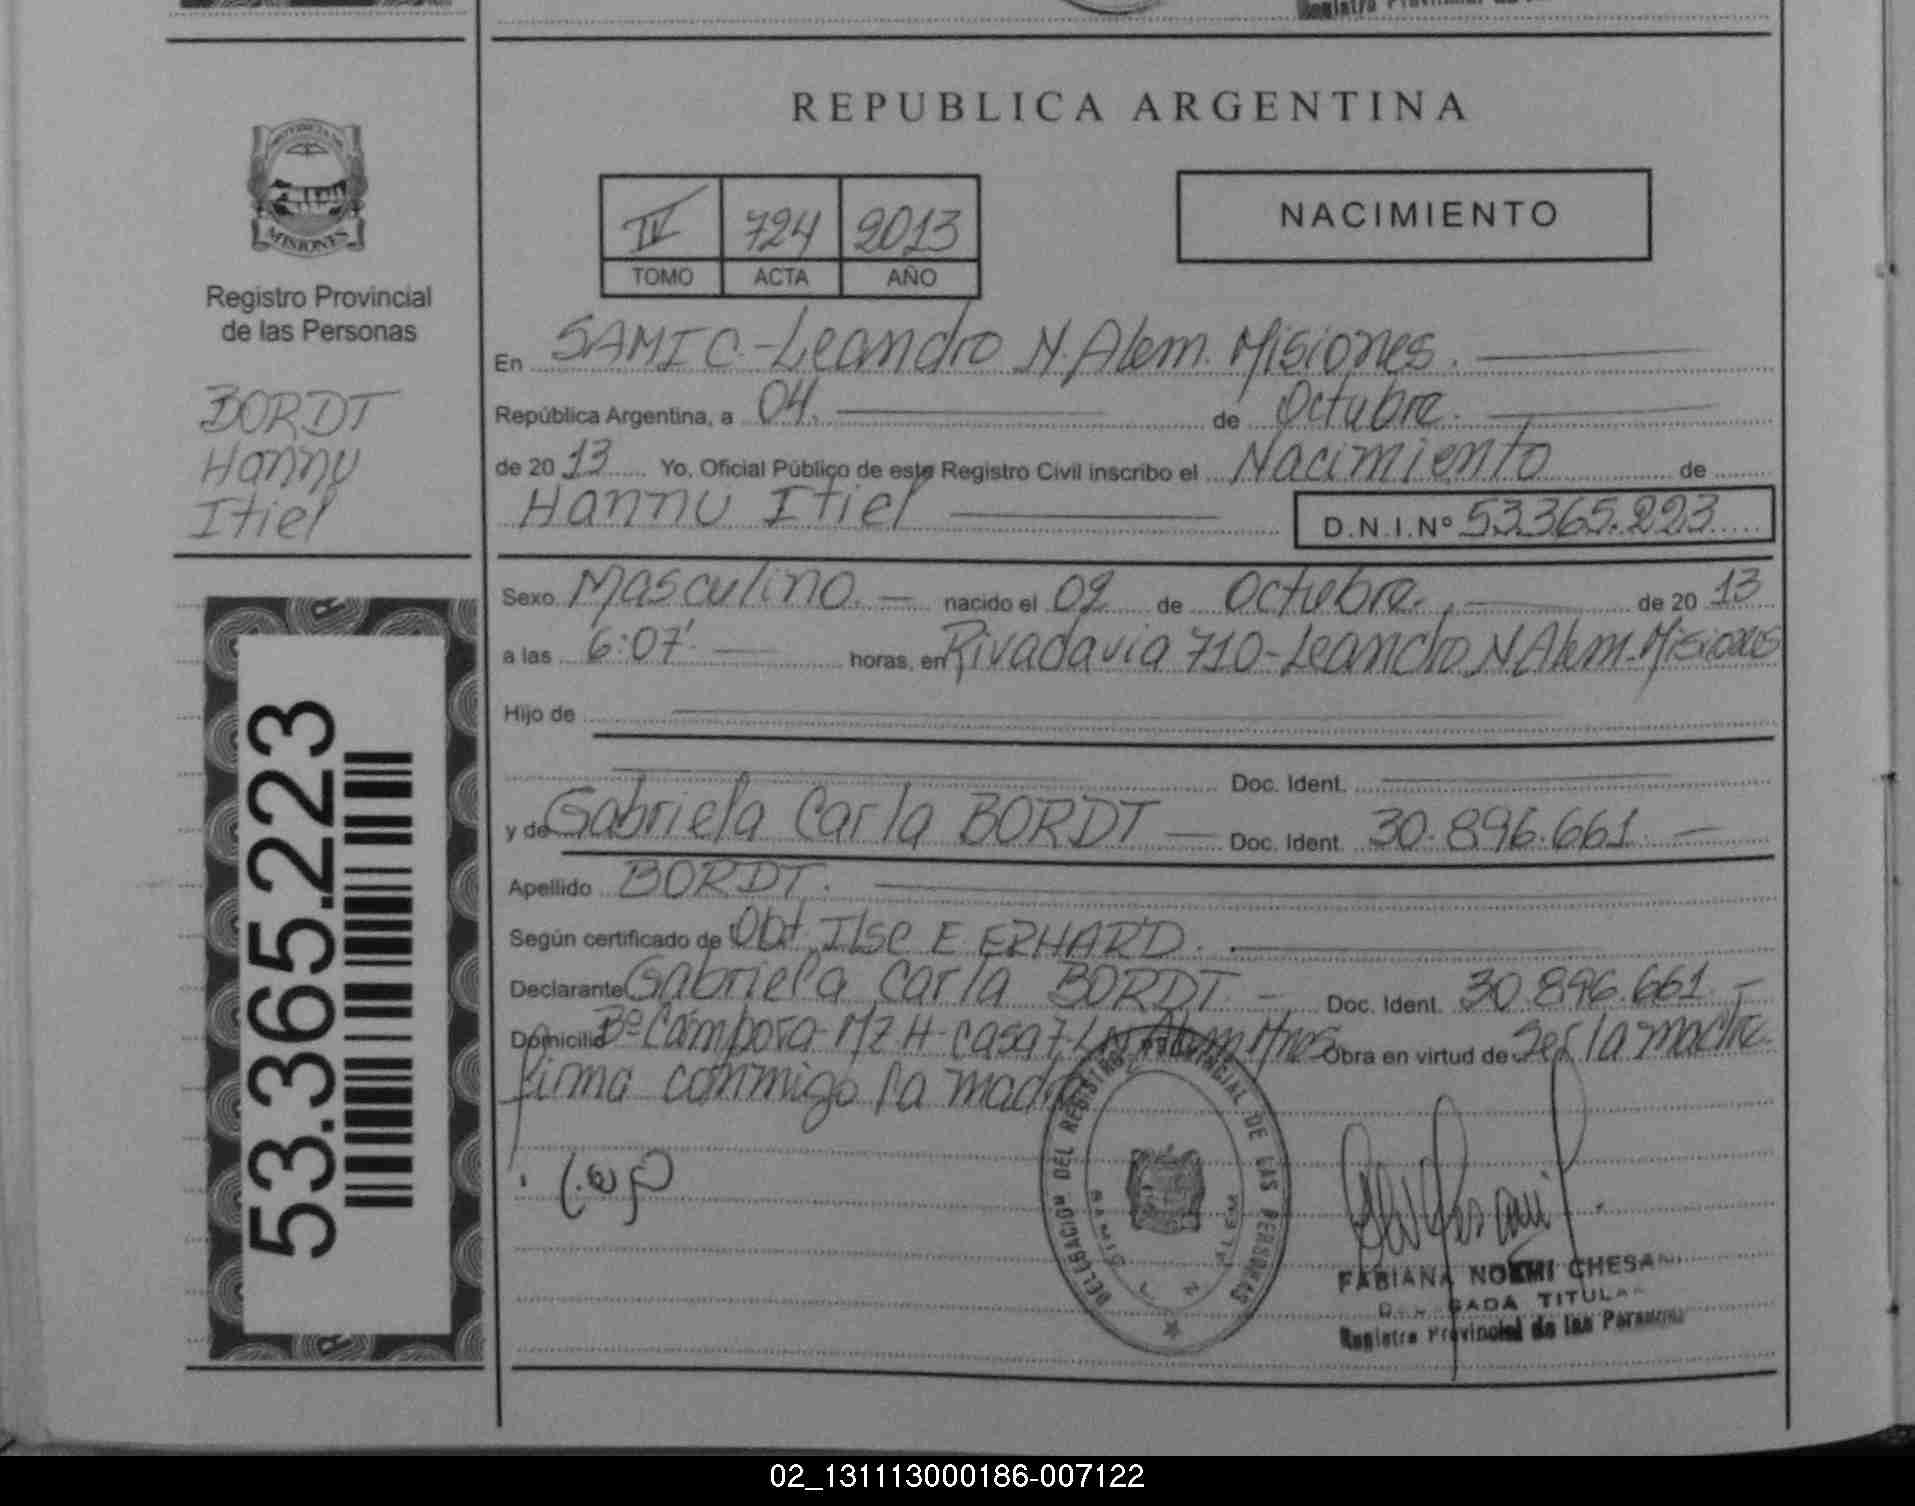 REPUBLICA ARGENTINA
MISIONES
Registro Provincial
de las Personas
BORDT
Hannu
Itiel
IV 724 2013
TOMO ACTA AÑO
NACIMIENTO
En SAMIC.-Leandro N. Alem. Misiones.
República Argentina, a 04. de Octubre.
de 20 13 Yo, Oficial Público de este Registro Civil inscribo el Nacimiento de
Hannu Itiel D.N.I.Nº 53.365.223
Sexo Masculino. nacido el 02 de Octubre. de 20 13
a las 6:07' horas, en Rivadavia 710-Leandro N Alem-Misiones
Hijo de
Doc. Ident.
y de Gabriela Carla BORDT Doc. Ident. 30.896.661.
Apellido BORDT.
Según certificado de Obt. Ilse E. ERHARD.
Declarante Gabriela Carla BORDT. Doc. Ident. 30.896.661.
Domicilio Bº Cámpora-Mz H-casa 7-L.N.Alem Mnes Obra en virtud de ser la madre.
firma conmigo la madre
DELEGACION DEL REGISTRO PROVINCIAL DE LAS PERSONAS
SAMIC L N ALEM
FABIANA NOEMI
TITULAR
Registro Provincial de las Personas
53.365.223
02_131113000186-007122